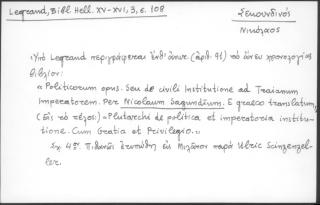 Legrand, Bibl Hell. XV-XVI, 3, σ. 108
Σεκουνδινός
Νικόλαος
Ὑπὸ Legrand περιγράφεται (ἀριθ. 91) τὸ ἄνευ χρονολογίας
βιβλίον:
« Politicorum opus. Seu de civili Institutione ad Traianum
Imperatorem. Per Nicolaum Sagundium. E graeco translatum,
(Εἰς τὸ τέλος:) «Plutarchi de politica et imperatoria institu-
tione. Cum Gratia et Privilegio.»
Σχ. 4ον. Πιθανῶς ἐτυπώθη ἐν Μιλάνῳ παρὰ Ulric Scinzenzel-
ler.